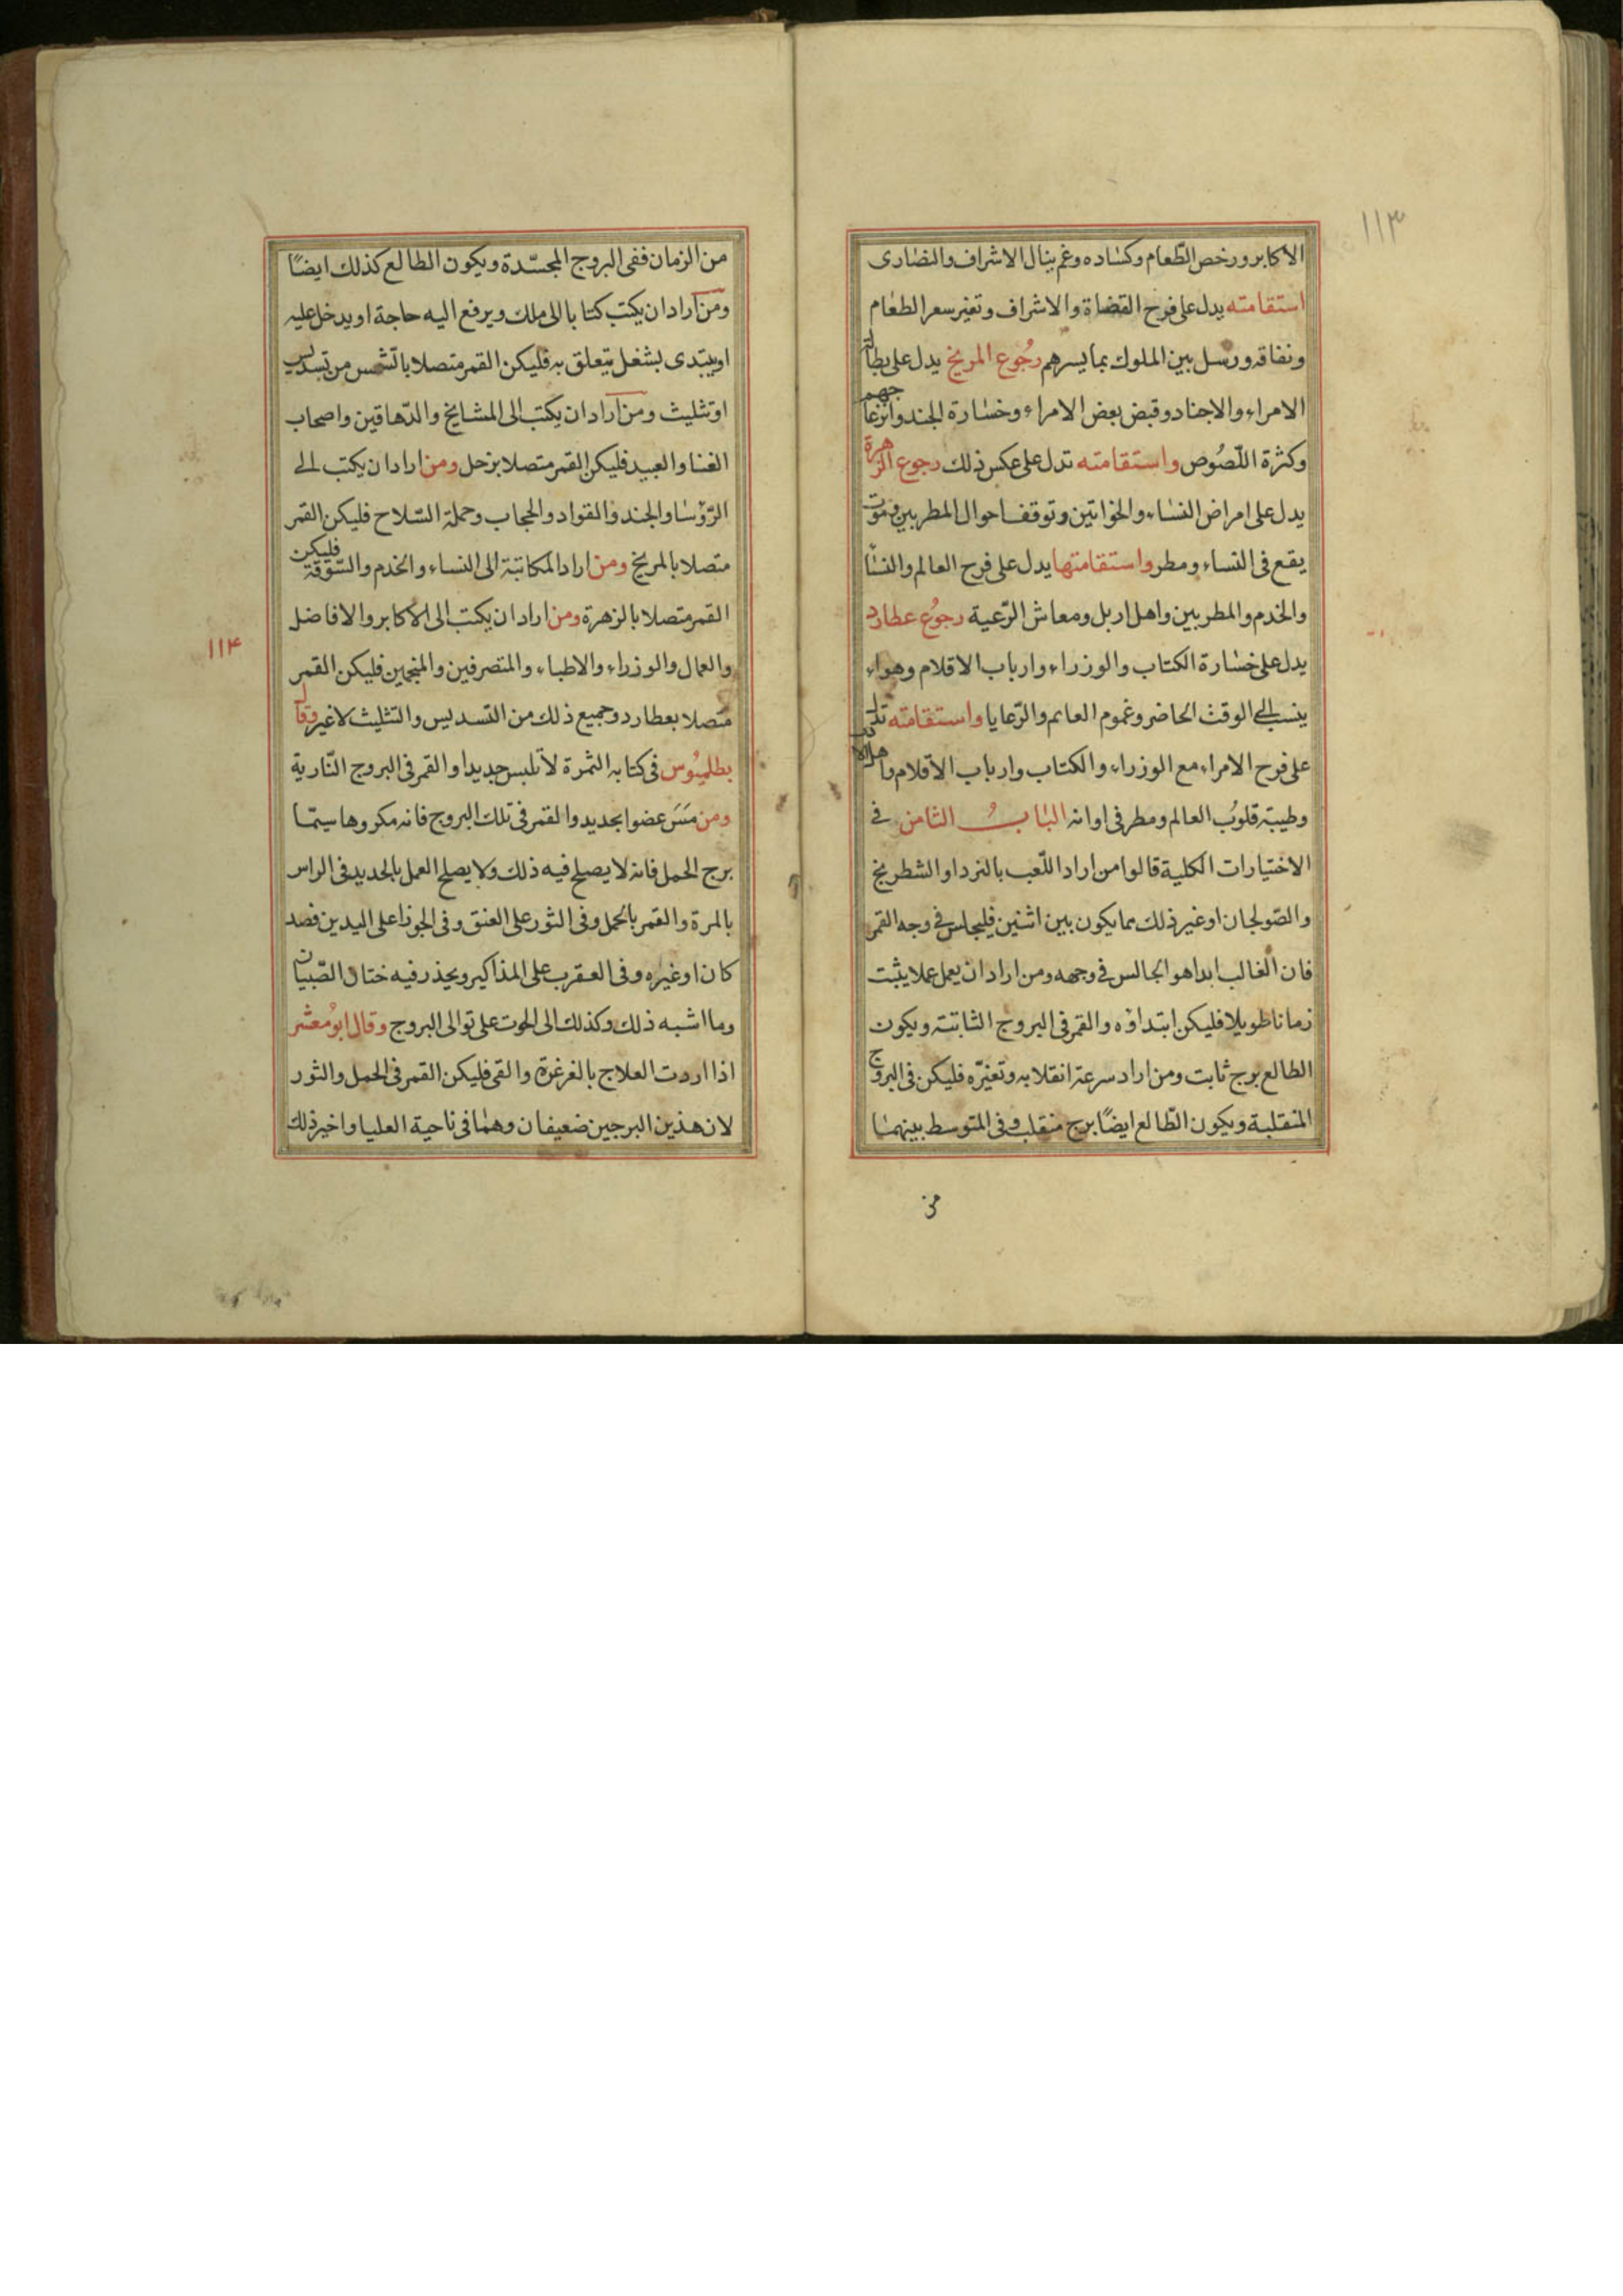 ١١٣
الاكابر ورخص الطّعام وكساده وغم ينال الاشراف والنصارى
استقامته يدل على فرح القضاة والاشراف وتغير سعر الطعام
ونفاقه ورسل بين الملوك بما يسرهم رجُوع المريخ يدل على بطالة
الامراء والاجناد وقبض بعض الامراء وخسارة الجند وانزعاجهم
وكثرة اللّصُوص واستقامته تدل على عكس ذلك رجوع الزهرة
يدل على امراض النساء والخواتين وتوقف احوال المطربين وموت
يقع فى النساء ومطر واستقامتها يدل على فرح العالم والنسا
والخدم والمطربين واهل اربل ومعاش الرّعية رجوُع عطارد
يدل على خسارة الكتاب والوزراء وارباب الاقلام وهواء
ينسب الى الوقت الحاضر وغموم العالم والرّعايا واستقامته تدل
على فرح الامراء مع الوزراء والكتاب وارباب الاقلام
وطيبة قلوُب العالم ومطر فى اوانه البابُ الثامن فى
الاختيارات الكلية قالوا من اراد اللّعب بالنرد او الشطرنج
والصّولجان او غير ذلك مما يكون بين اثنين فليجلس فى وجه القمر
فان الغالب ابدا هو الجالس فى وجهه ومن اراد ان يعمل عملا يثبت
زمانا طويلا فليكن ابتداؤه والقمر فى البروج الثابتة ويكون
الطالع برج ثابت ومن اراد سرعة انقلابه وتغيّره فليكن فى البروج
المنقلبة ويكون الطّالع ايضًا برج منقلب وفى المتوسط بينهما
من
من الزمان ففى البروج المجسّدة ويكون الطالع كذلك ايضًا
ومن اراد ان يكتب كتابا الى ملك ويرفع اليه حاجة او يدخل عليه
او يبتدى بشغل يتعلق به فليكن القمر متصلا بالشمس من تسديس
او تثليث ومن اراد ان يكتب الى المشايخ والدّهاقين واصحاب
الغنا والعبيد فليكن القمر متصلا بزحل ومن اراد ان يكتب الى
الرّؤسا والجند والقواد والحجاب وحملة السّلاح فليكن القمر
متصلا بالمريخ ومن اراد المكاتبة الى النساء والخدم والسّوقة فليكن
القمر متصلا بالزهرة ومن اراد ان يكتب الى الاكابر والافاضل
١١٤
والعمال والوزراء والاطباء والمتصرفين والمنجمين فليكن القمر
متصلا بعطارد وجميع ذلك من التسديس والتثليث لا غير وقال
بطلميُوس فى كتابه الثمرة لا تلبس جديدا والقمر فى البروج النّارية
ومن مَسَ عضوا بحديد والقمر فى تلك البروج فانه مكروها سيّما
برج الحمل فانه لا يصلح فيه ذلك ولا يصلح العمل بالحديد فى الراس
بالمرة والقمر بالحمل وفى الثور على العنق وفى الجوزا على اليدين فصد
كان او غيره وفى العقرب على المذاكير ويحذر فيه ختان الصّبيان
وما اشبه ذلك وكذلك الى الحوت على توالى البروج وقال ابوُ معشر
اذا اردت العلاج بالغرغرة والقى فليكن القمر فى الحمل والثور
لان هذين البرجين ضعيفان وهما فى ناحية العليا واخير ذلك